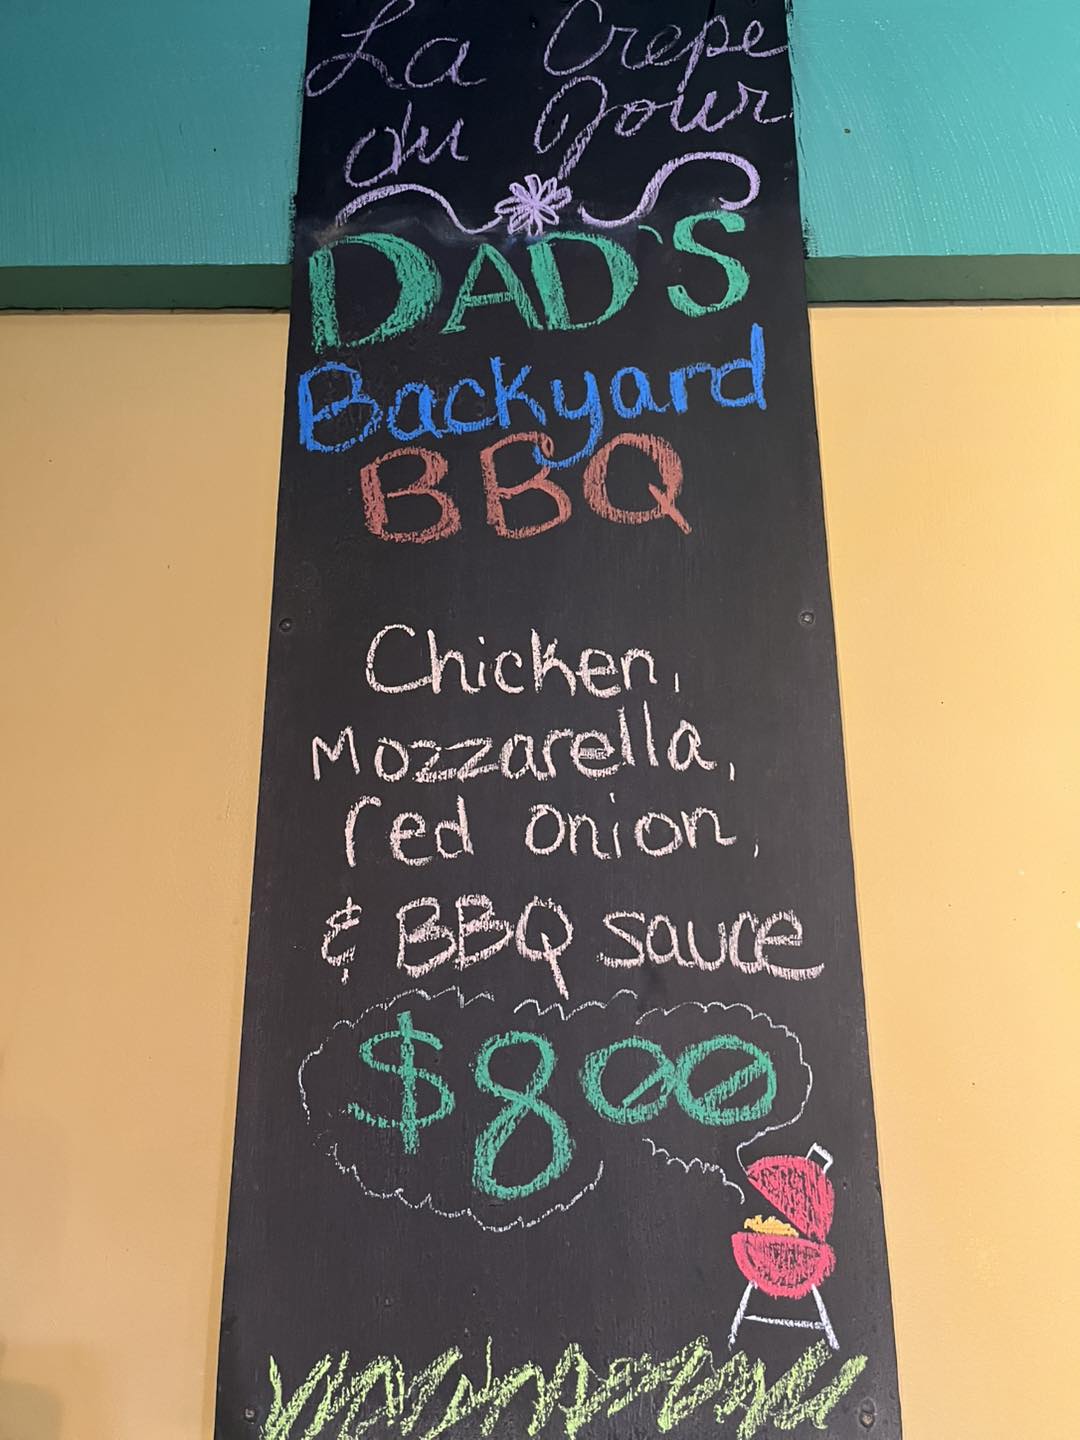 La Crepe
du Jour
DAD'S
Backyard
BBQ
Chicken,
Mozzarella,
red onion,
& BBQ sauce
$8.00